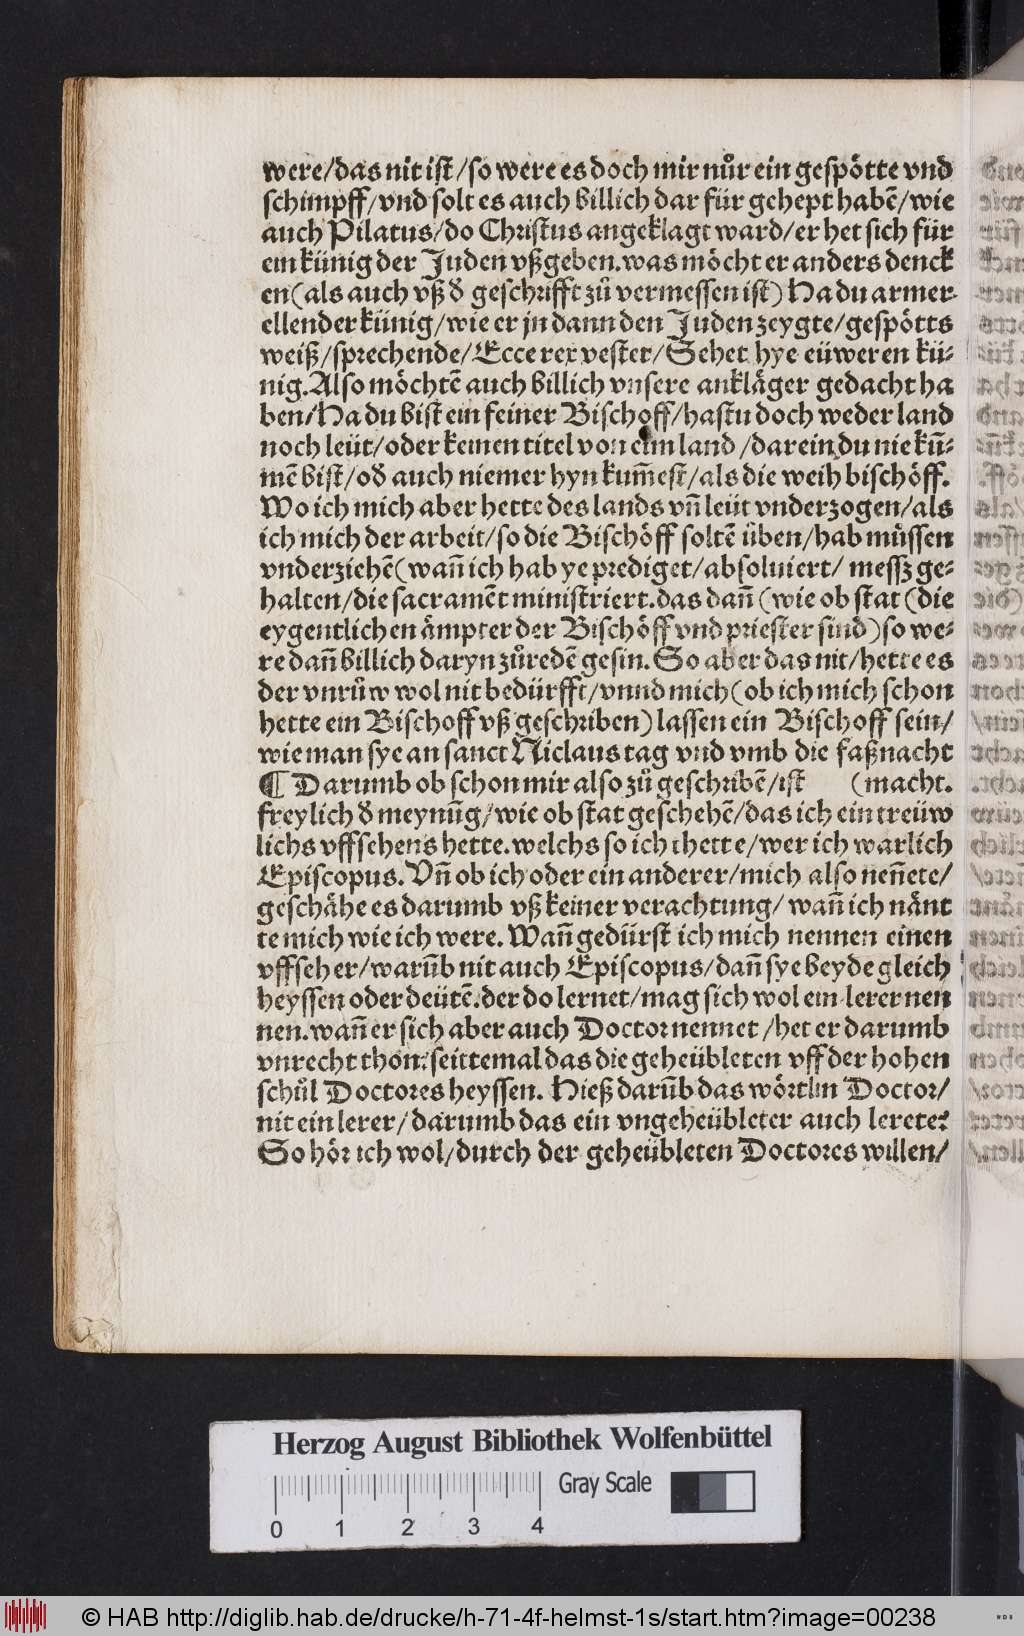 were/das nit ist/so were es doch mir nůr ein gespötte vnd
schimpff/vnd solt es auch billich dar für gehept habē/wie
auch Pilatus/do Christus angeklagt ward/er het sich für
ein künig der Juden vßgeben.was möcht er anders denck
en(als auch vß d̕ geschrifft zů vermessen ist) Ha du armer
ellender künig/wie er jn dann den Juden zeygte/gespötts
weiß/sprechende/Ecce rex vester/Sehet hye eüweren kü-
nig.Also möchtē auch billich vnsere ankläger gedacht ha
ben/Ha du bist ein feiner Bischoff/hastu doch weder land
noch leüt/oder keinen titel von eim land/darein du nie kū-
mē bist/od̕ auch niemer hyn kum̄est/als die weih bischöff.
Wo ich mich aber hette des lands vn̄ leüt vnderzogen/als
ich mich der arbeit/so die Bischöff soltē üben/hab müssen
vnderziehē(wan̄ ich hab ye prediget/absoluiert/ messz ge-
halten/die sacramēt ministriert.das dan̄ (wie ob stat (die
eygentlichen ämpter der Bischöff vnd priester sind)so we-
re dan̄ billich daryn zůredē gesin. So aber das nit/hette es
der vnrůw wol nit bedürfft/vnnd mich(ob ich mich schon
hette ein Bischoff vß geschriben) lassen ein Bischoff sein/
wie man sye an sanct Niclaus tag vnd vmb die faßnacht
¶ Darumb ob schon mir also zů geschribē/ist (macht.
freylich d̕ meynūg/wie ob stat geschehē/das ich ein treüw
lichs vffsehens hette.welchs so ich thette/wer ich warlich
Episcopus.Vn̄ ob ich oder ein anderer/mich also nen̄ete/
geschähe es darumb vß keiner verachtung/ wan̄ ich nänt
te mich wie ich were. Wan̄ gedürst ich mich nennen einen
vffseher/warūb nit auch Episcopus/dan̄ sye beyde gleich
heyssen oder deütē.der do lernet/mag sich wol ein lerer nen
nen.wan̄ er sich aber auch Doctor nennet/het er darumb
vnrecht thon: seittemal das die geheübleten vff der hohen
schůl Doctores heyssen. Hieß darūb das wörtlin Doctor/
nit ein lerer/darumb das ein vngeheübleter auch lerete?
So hör ich wol/durch der geheübleten Doctores willen/
Herzog August Bibliothek Wolfenbüttel
Gray Scale
0 1 2 3 4
© HAB http://diglib.hab.de/drucke/h-71-4f-helmst-1s/start.htm?image=00238